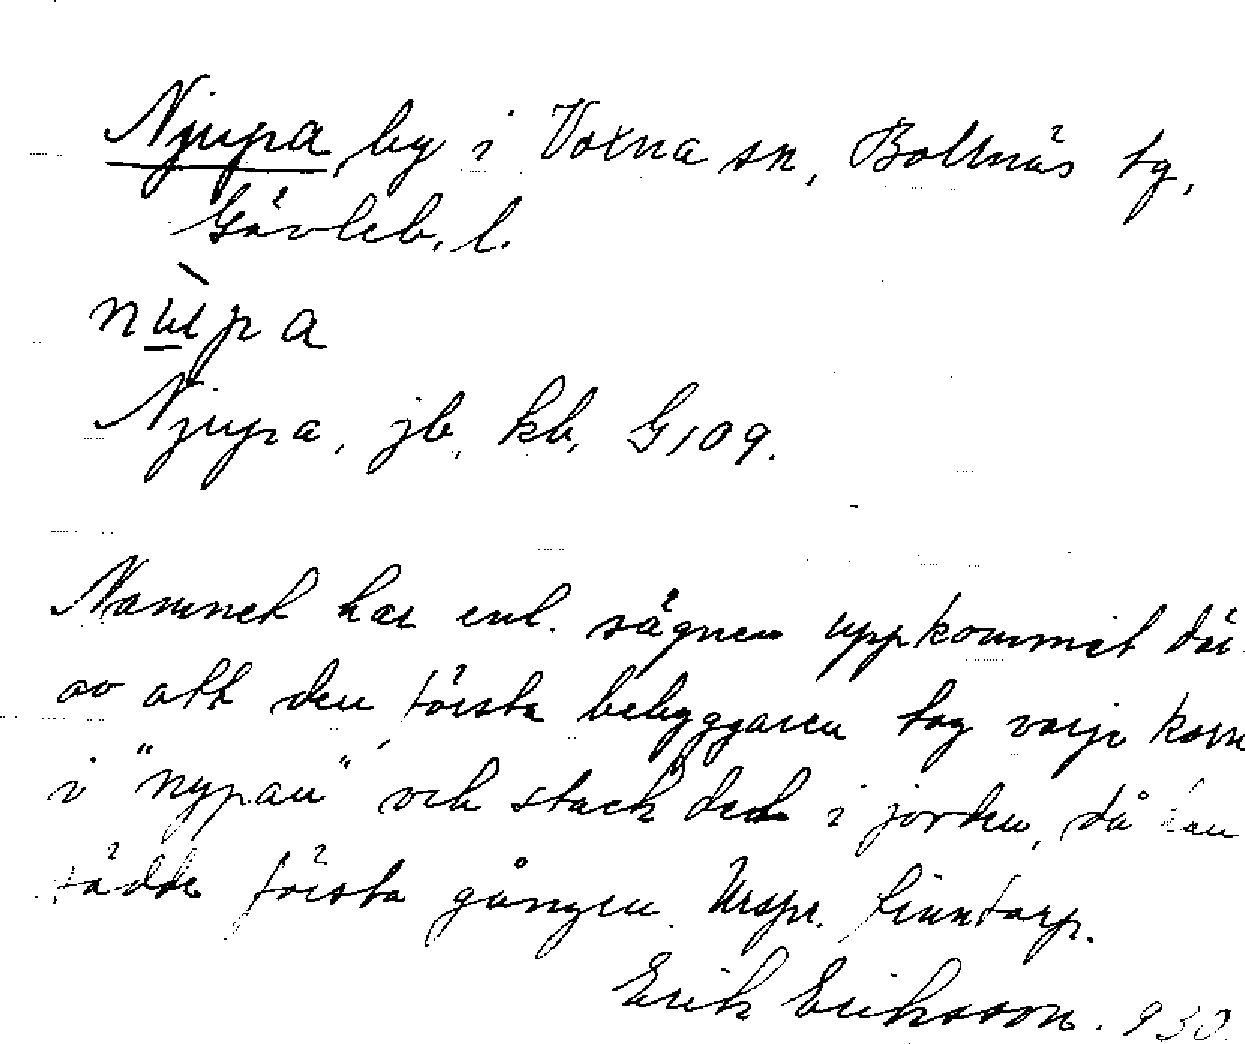 Njupa by i Voxna sn, Bollnäs tg,
Gävleb. l.
Njupa, jb, kb, G109.
Namnet har enl. sägnen uppkommit där
av att den första bebyggaren tog varje korn
i "nypan" och stack ned i jorden, då han
sådde första gången. Urspr. finntorp.
Erik Eriksson. 930.